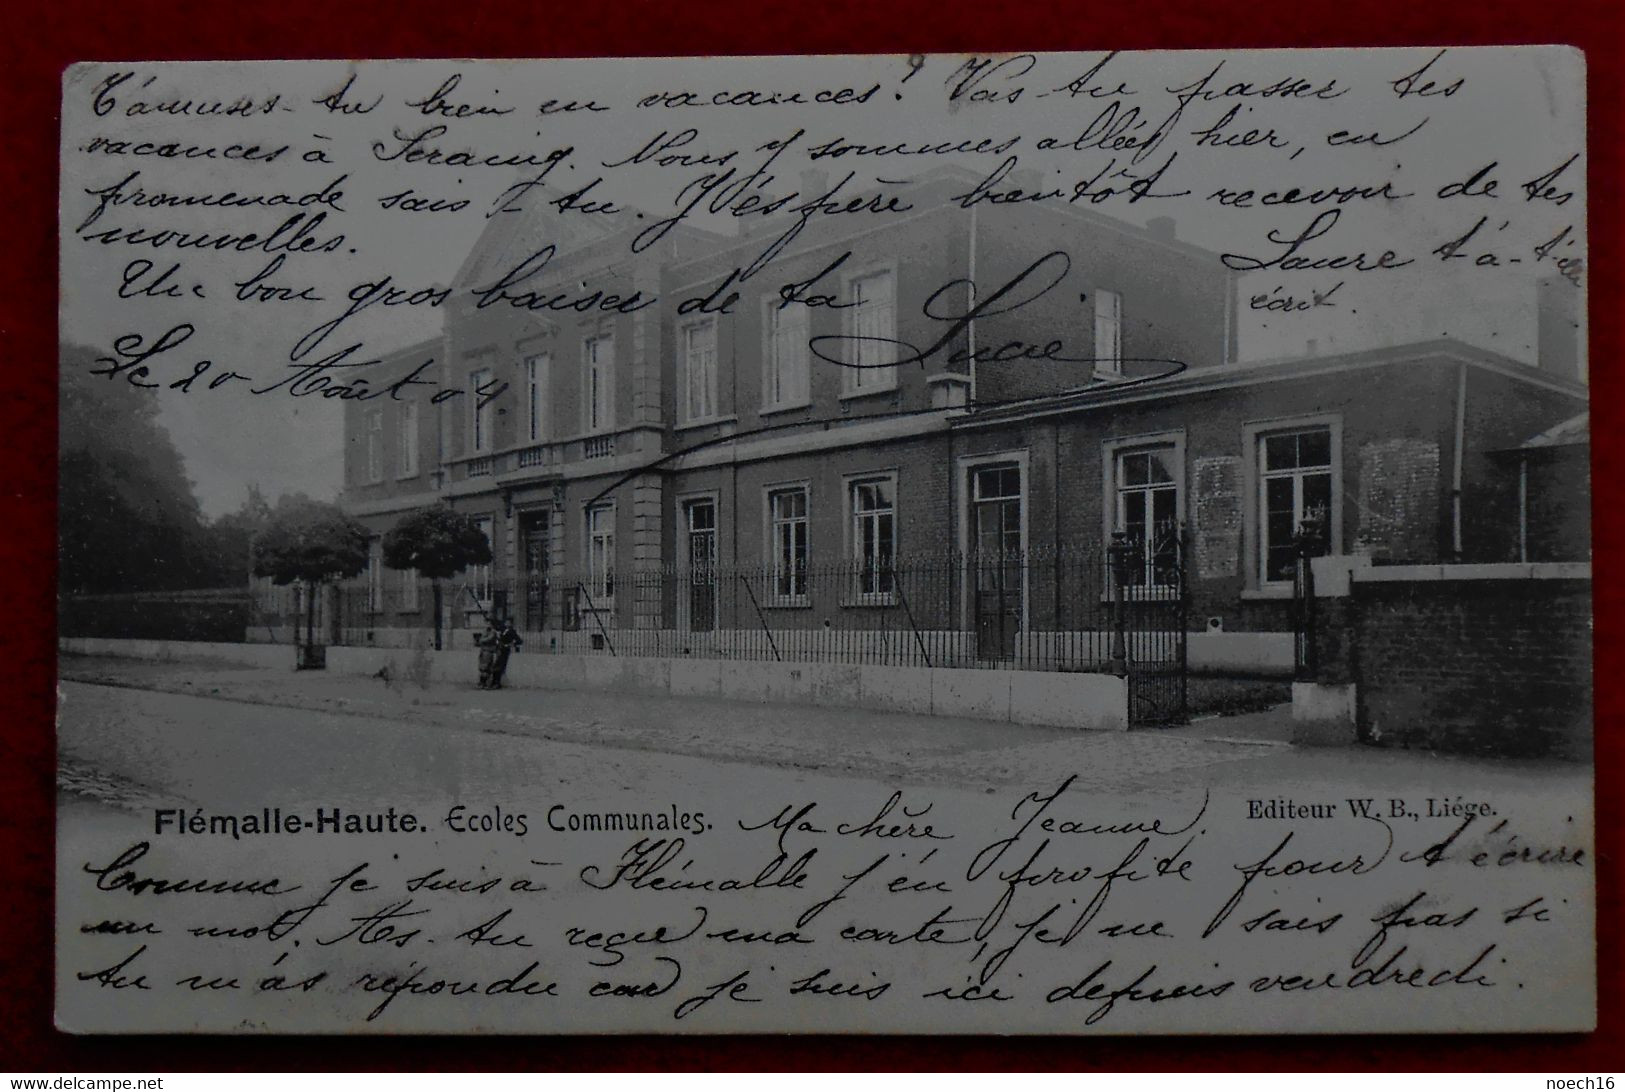 T'amuses-tu bien en vacances? Vas-tu passer tes
vacances à Seraing. Nous y sommes allées hier, en
promenade sais-tu. J'éspère bientôt recevoir de tes
nouvelles.
Laure t'a-t-elle
écrit.
Un bon gros baiser de ta
Lucie
Le 20 Août 04.
Flémalle-Haute. Ecoles Communales.
Editeur W. B., Liége.
Ma chère Jeanne.
Comme je suis à Flémalle j'en profite pour t'écrire
un mot. As-tu reçue ma carte, je ne sais pas si
tu m'as répondu car je suis ici depuis vendredi.
noech16